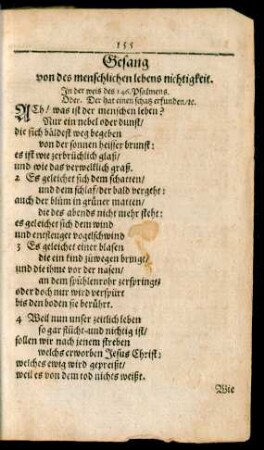 155
Gesang
von des menschlichen lebens nichtigkeit.
In der weis des 146. Psalmens.
Oder. Der hat einen schatz erfunden/ꝛc.
ACh/ was ist der menschen leben?
Nur ein nebel oder dunst/
die sich bäldest weg begeben
von der sonnen heisser brunst:
es ist wie zerbrüchlich glaß/
und wie das verwelklich graß.
2 Es geleichet sich dem schatten/
und dem schlaf/ der bald vergeht:
auch der blüm in grüner matten/
die des abends nicht mehr steht:
es geleichet sich dem wind
und entfleuget vogelschwind
3 Es geleichet einer blasen
die ein kind zuwegen bringt/
und die ihme vor der nasen/
an dem spühlenrohr zerspringt/
oder doch nur wird verspürt
bis den boden sie berührt.
4 Weil nun unser zeitlich leben
so gar flücht- und nichtig ist/
sollen wir nach jenem streben
welchs erworben Jesus Christ:
welches ewig wird gepreißt/
weil es von dem tod nichts weißt.
Wie